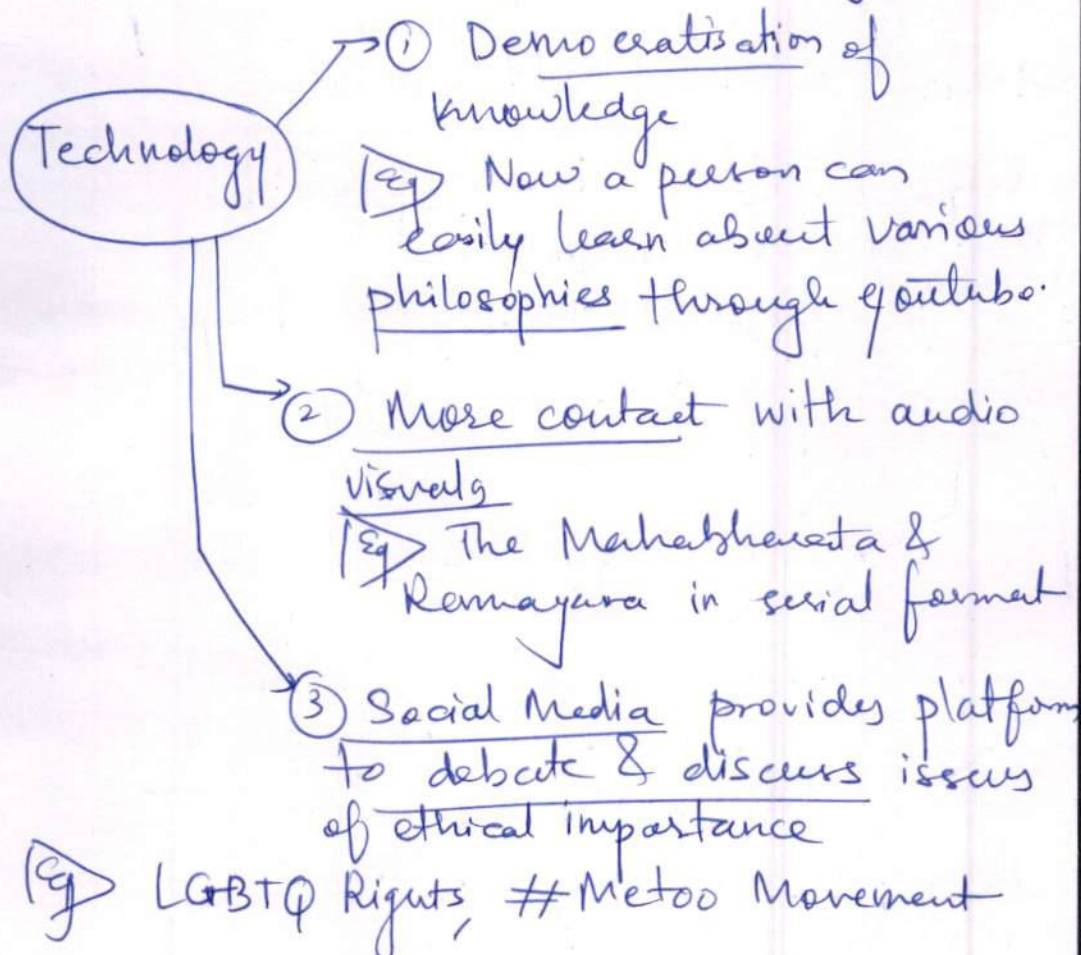 ① Democratisation of
knowledge
Technology
Eg Now a person can
easily learn about various
philosophies through youtube.
② More contact with audio
visuals
Eg The Mahabharata &
Ramayana in serial format
③ Social Media provides platform
to debate & discuss issues
of ethical importance
Eg LGBTQ Rights, #Metoo Movement